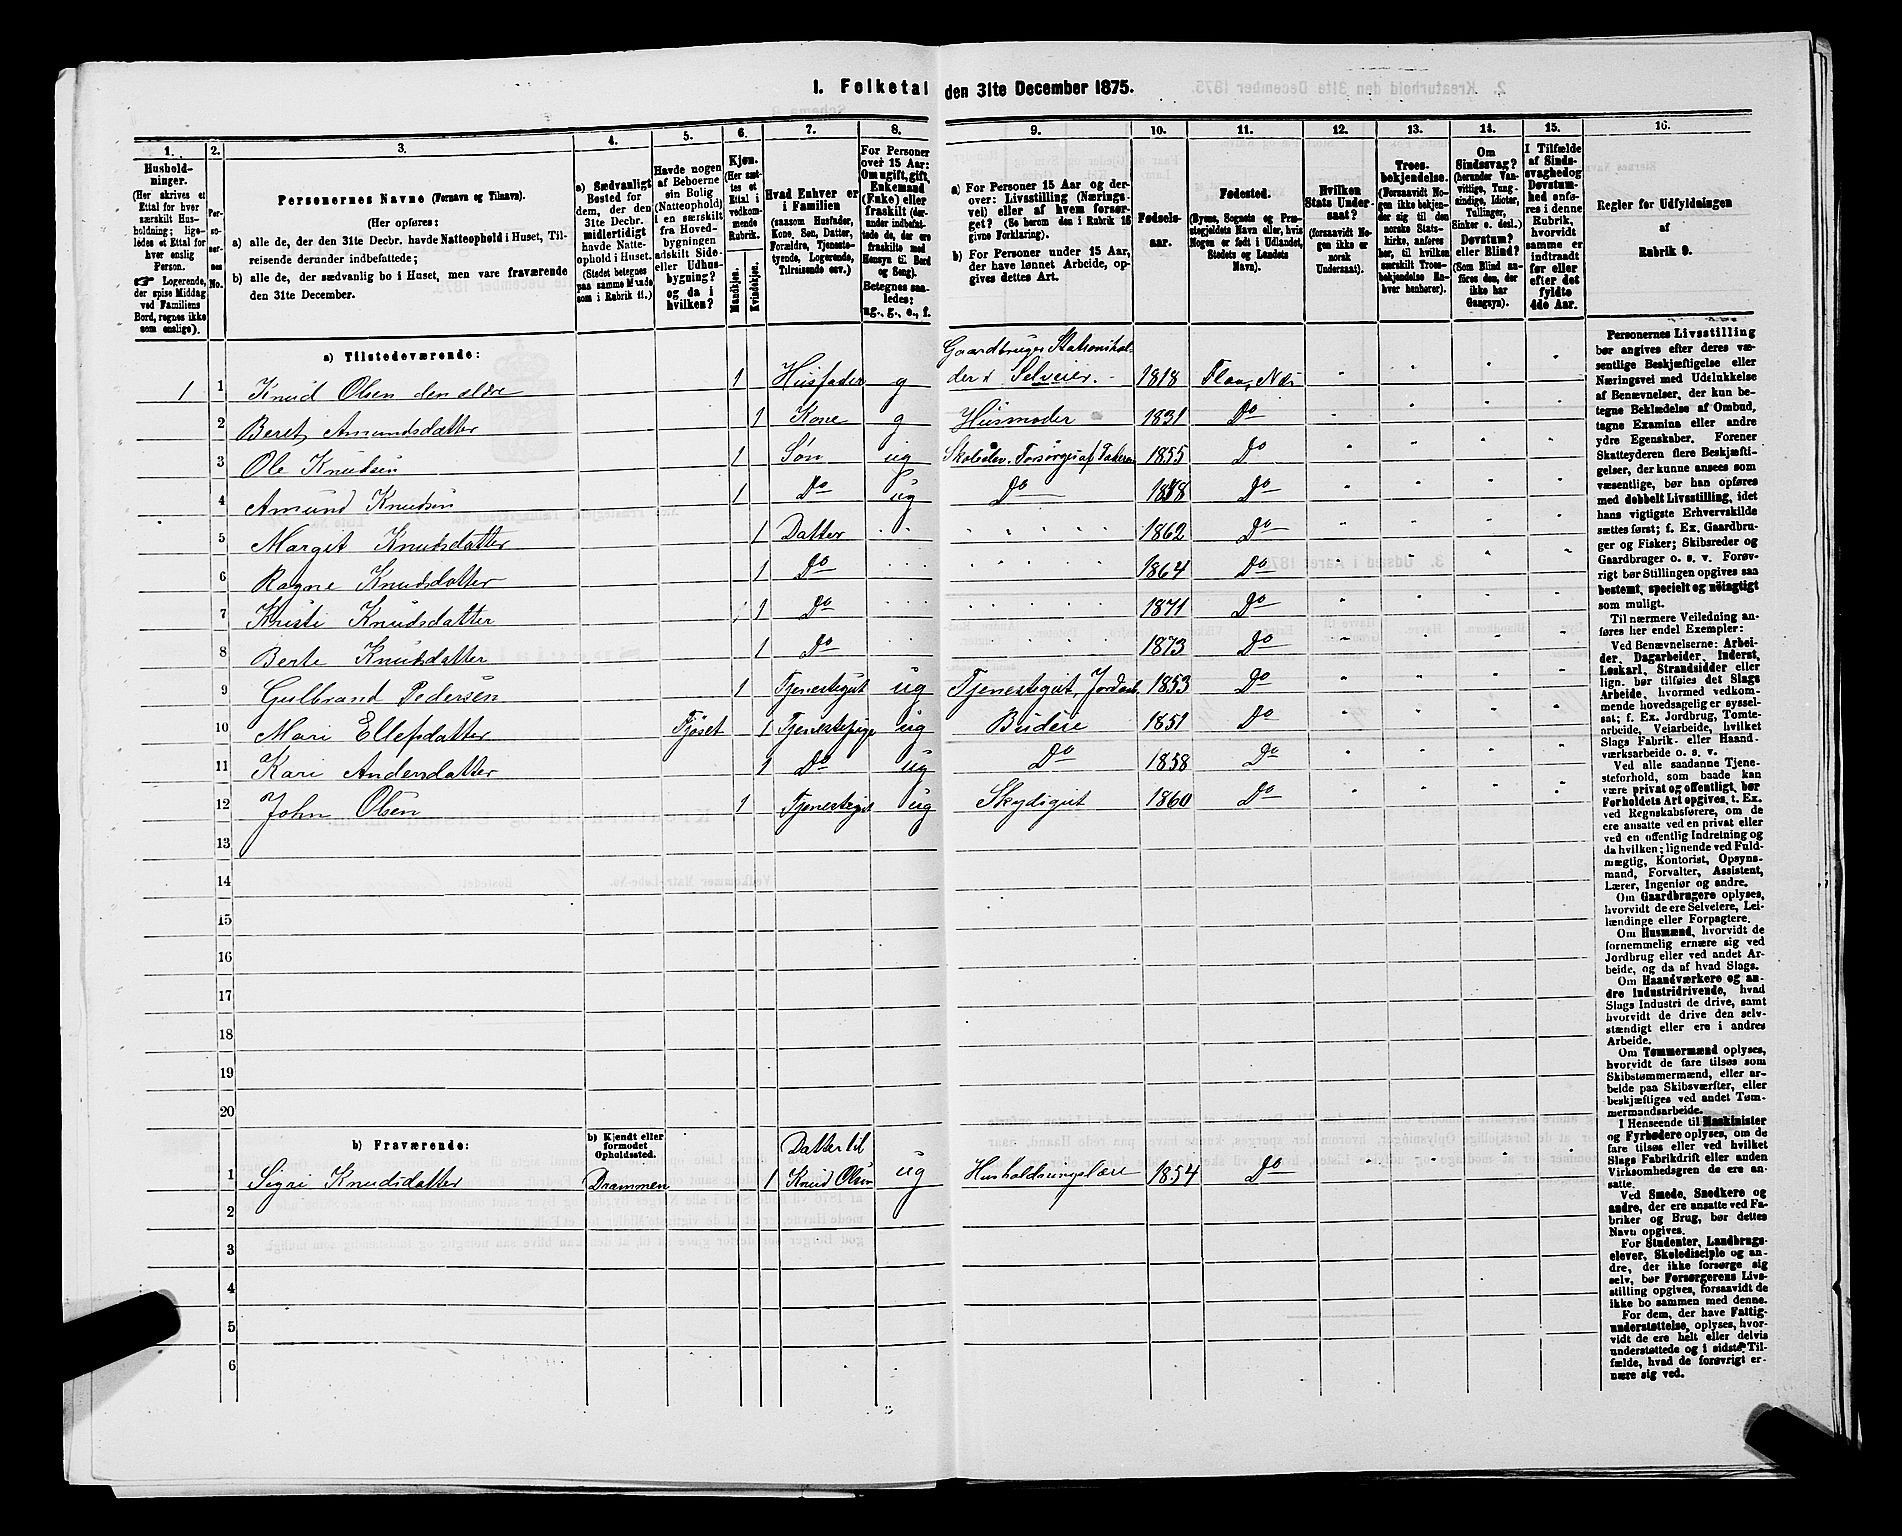 1. Folketal den 31te December 1875.
1. 2. 3. 4. 5. 6. 7. 8. 9. 10. 11. 12. 13. 14. 15. 16.
Hushold-
ninger.
(Her skrives et
Ettal for hver
særskilt Hus-
holdning; lige-
ledes et Ettal for
hver enslig
Person.
☞ Logerende,
der spise Middag
ved Familiens
Bord, regnes ikke
som enslige).
Per-
soner-
nes
No.
Personernes Navne (Fornavn og Tilnavn).
(Her opføres:
a) alle de, der den 31te Decbr. havde Natteophold i Huset, Til-
reisende derunder indbefattede;
b) alle de, der sædvanlig bo i Huset, men vare fraværende
den 31te December.
a) Sædvanligt
Bosted for
dem, der den
31te Decbr.
midlertidigt
havde Natte-
ophold i Huset.
(Stedet betegnes
paa samme Maade
som i Rubrik 11.)
Havde nogen
af Beboerne
sin Bolig
(Natteophold)
i en særskilt
fra Hoved-
bygningen
adskilt Side-
eller Udhus-
bygning?
og da i
hvilken?
Kjøn.
(Her sæt-
tes et
Ettal i
vedkom-
mende
Rubrik.
Mandkjøn.
Kvindekjøn.
Hvad Enhver er
i Familien
(saasom Husfader,
Kone, Søn, Datter,
Forældre, Tjeneste-
tyende, Logerende,
Tilreisende osv.)
For Personer
over 15 Aar:
Om ugift, gift,
Enkemand
(Enke) eller
fraskilt (der-
under indbefat-
tede de, der ere
fraskilte med
Hensyn til Bord
og Seng).
Betegnes saa-
ledes:
ug., g., e., f.
a) For Personer 15 Aar og der-
over: Livsstilling (Nærings-
vei) eller af hvem forsør-
get? (Se herom den i Rubrik 16
givne Forklaring).
b) For Personer under 15 Aar,
der have lønnet Arbeide, op-
gives dettes Art.
Fødsels-
aar.
Fødested.
(Byens, Sognets og Præ-
stegjeldets Navn eller, hvis
Nogen er født i Udlandet,
Stedets og Landets
Navn).
Hvilken
Stats Under-
saat?
(forsaavidt No-
gen ikke er
norsk
Undersaat).
Troes-
bekjendelse.
(Forsaavidt No-
gen ikke bekjen-
der sig til den
norske Stats-
kirke, anføres
her, til hvilken
særskilt Troes-
bekjendelse En-
hver henhører).
Om
Sindssvag?
(herunder Van-
vittige, Tung-
sindige, Idioter,
Tullinger,
Sinker o. desl.).
Døvstum?
eller Blind?
(Som Blind an-
føres den, der
ikke har
Gangsyn).
I Tilfælde
af Sinds-
svaghed og
Døvstum-
hed anfø-
res i denne
Rubrik,
hvorvidt
samme er
indtraadt
før eller
efter det
fyldte
4de Aar.
Regler for Udfyldningen
af
Rubrik 9.
a) Tilstedeværende:
1 1 Knud Olsen den ældre 1 Husfader g Gaardbruger Stationshol-
der & Selveier. 1818 Flaa, Næs
2 Beret Amundsdatter 1 Kone g Husmoder 1831 Do
3 Ole Knudsen 1 Søn ug Skoleelev. Forsørges af Faderen 1855 Do
4 Amund Knudsen 1 Do ug Do 1858 Do
5 Margit Knudsdatter 1 Datter 1862 Do
6 Ragne Knudsdatter 1 Do 1864 Do
7 Kristi Knudsdatter 1 Do 1871 Do
8 Berte Knudsdatter 1 Do 1873 Do
9 Gulbrand Pedersen 1 Tjenestegut ug Tjenestegut, Jordarb. 1853 Do
10 Mari Ellefsdatter Fjøset 1 Tjenestepige ug Budeie 1851 Do
11 Kari Andersdatter 1 Do ug Do 1858 Do
12 John Olsen 1 Tjenestegut ug Skydsgut 1860 Do
13
14
15
16
17
18
19
20
b) Fraværende:
b) Kjendt eller
formodet
Opholdssted.
1 Sigri Knudsdatter Drammen 1 Datter til
Knud Olsen ug Husholdningslære 1854 Do
2
3
4
5
6
Personernes Livsstilling
bør angives efter deres væ-
sentlige Beskjæftigelse eller
Næringsvei med Udelukkelse
af Benævnelser, der kun be-
tegne Beklædelse af Ombud,
tagne Examina eller andre
ydre Egenskaber. Forener
Skatteyderen flere Beskjæfti-
gelser, der kunne ansees som
væsentlige, bør han opføres
med dobbelt Livsstilling, idet
hans vigtigste Erhvervskilde
sættes først; f. Ex. Gaardbru-
ger og Fisker; Skibsreder og
Gaardbruger o. s. v. Forøv-
rigt bør Stillingen opgives saa
bestemt, specielt og nøiagtigt
som muligt.
Til nærmere Veiledning an-
føres her endel Exempler:
Ved Benævnelserne: Arbei-
der, Dagarbeider, Inderst,
Løskarl, Strandsidder eller
lign. bør tilføies det Slags
Arbeide, hvormed vedkom-
mende hovedsagelig er syssel-
sat; f. Ex. Jordbrug, Tomte-
arbeide, Veiarbeide, hvilket
Slags Fabrik- eller Haand-
værksarbeide o. s. v.
Ved alle saadanne Tjene-
steforhold, som baade kan
være privat og offentligt, bør
Forholdets Art opgives, t. Ex.
ved Regnskabsførere, om de
ere ansatte ved en privat eller
ved en offentlig Indretning og
da hvilken; lignende ved Fuld-
mægtig, Kontorist, Opsyns-
mand, Forvalter, Assistent,
Lærer, Ingeniør og andre.
Om Gaardbrugere oplyses,
hvorvidt de ere Selveiere, Lei-
lændinge eller Forpagtere.
Om Husmænd, hvorvidt de
fornemmelig ernære sig ved
Jordbrug eller ved andet Ar-
beide, og da af hvad Slags.
Om Haandværkere og an-
dre Industridrivende, hvad
Slags Industri de drive, samt
hvorvidt de drive den selv-
stændigt eller ere i andres
Arbeide.
Om Tømmermænd oplyses,
hvorvidt de fare tilsøs som
Skibstømmermænd, eller ar-
beide paa Skibsværfter, eller
beskjæftiges ved andet Tøm-
mermandsarbeide.
I Henseende til Maskinister
og Fyrbødere oplyses, om de
fare tilsøs eller ved hvilket
Slags Fabrikdrift eller anden
Virksomhedsgren de ere an-
satte.
Ved Smede, Snedkere og
andre, der ere ansatte ved Fa-
briker og Brug, bør dettes
Navn opgives.
For Studenter, Landbrugs-
elever, Skoledisciple og an-
dre, der ikke forsørge sig
selv, bør Forsørgerens Livs-
stilling opgives, forsaavidt de
ikke bo sammen med denne.
For dem, der have Fattig-
understøttelse, oplyses, hvor-
vidt de ere helt eller delvis
understøttede og i sidste Til-
fælde, hvad de forøvrigt er-
nære sig ved.